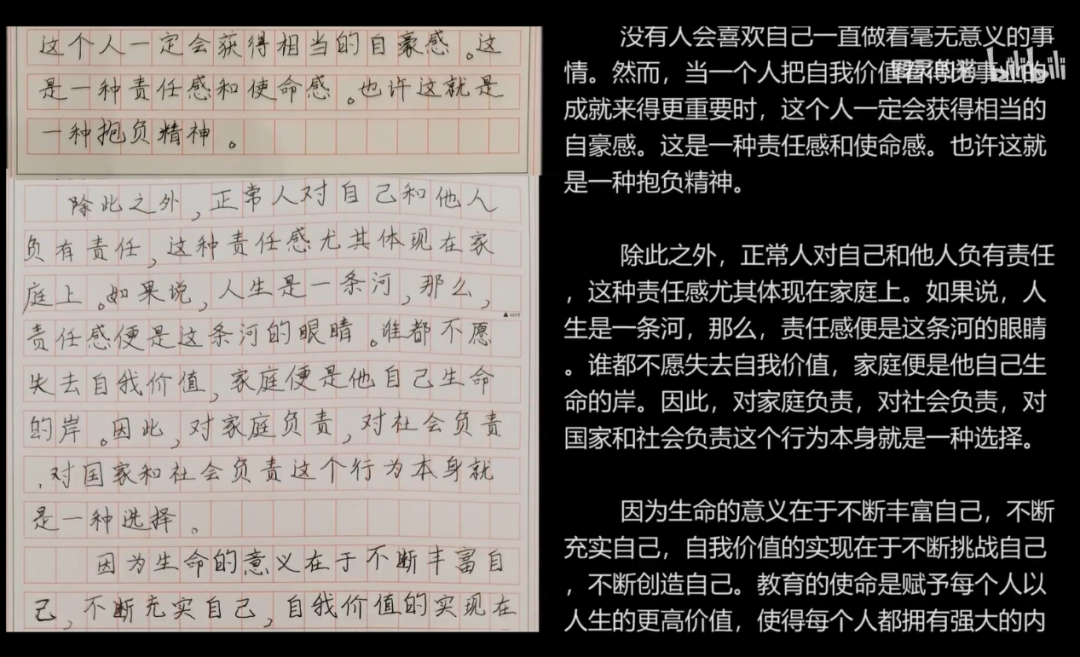 这个人一定会获得相当的自豪感。这
是一种责任感和使命感。也许这就是
一种抱负精神。
除此之外,正常人对自己和他人
负有责任,这种责任感尤其体现在家
庭上。如果说,人生是一条河,那么,
责任感便是这条河的眼睛。谁都不愿
失去自我价值,家庭便是他自己生命
的岸。因此,对家庭负责,对社会负责
,对国家和社会负责这个行为本身就
是一种选择。
因为生命的意义在于不断丰富自
己,不断充实自己,自我价值的实现在
没有人会喜欢自己一直做着毫无意义的事
情。然而,当一个人把自我价值看得比事业的
成就来得更重要时,这个人一定会获得相当的
自豪感。这是一种责任感和使命感。也许这就
是一种抱负精神。
除此之外,正常人对自己和他人负有责任
,这种责任感尤其体现在家庭上。如果说,人
生是一条河,那么,责任感便是这条河的眼睛
。谁都不愿失去自我价值,家庭便是他自己生
命的岸。因此,对家庭负责,对社会负责,对
国家和社会负责这个行为本身就是一种选择。
因为生命的意义在于不断丰富自己,不断
充实自己,自我价值的实现在于不断挑战自己
,不断创造自己。教育的使命是赋予每个人以
人生的更高价值,使得每个人都拥有强大的内
bilibili